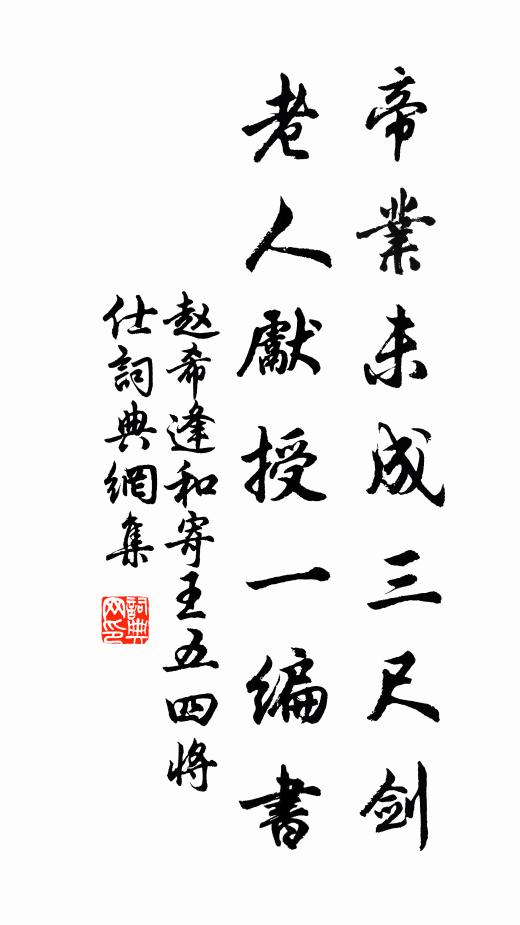 帝業未成三尺劍
老人獻授一編書
赵希逢和寄王五四將
仕詞典網集
詞典
网印